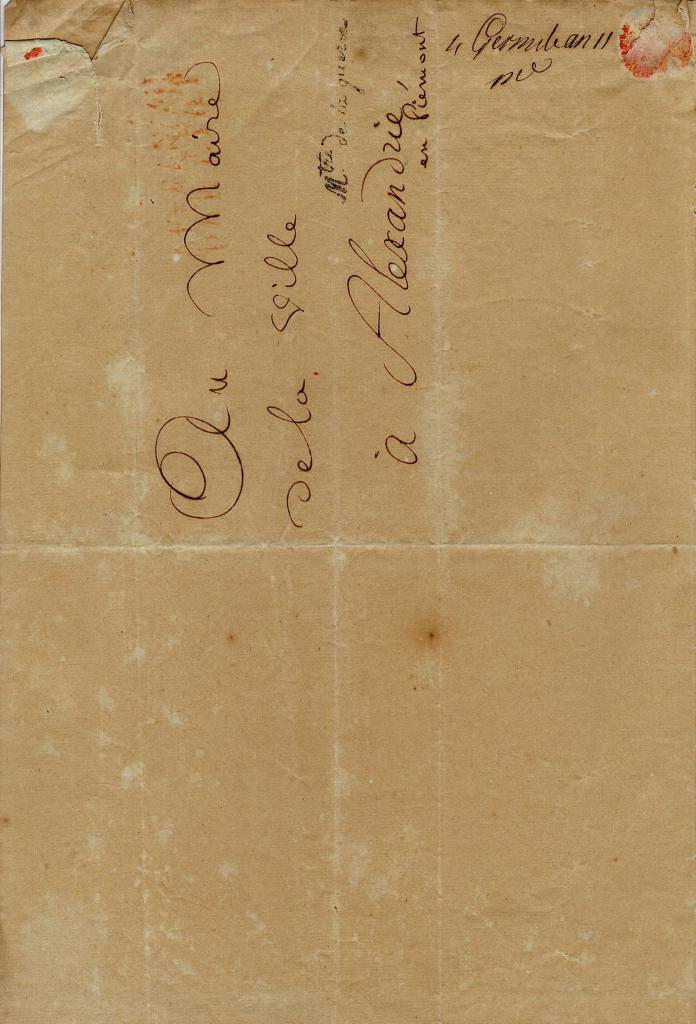 Au Maire
de la ville
Mtre de la guerre
à Alexandrie
en Piémont
4 Germinal an 11